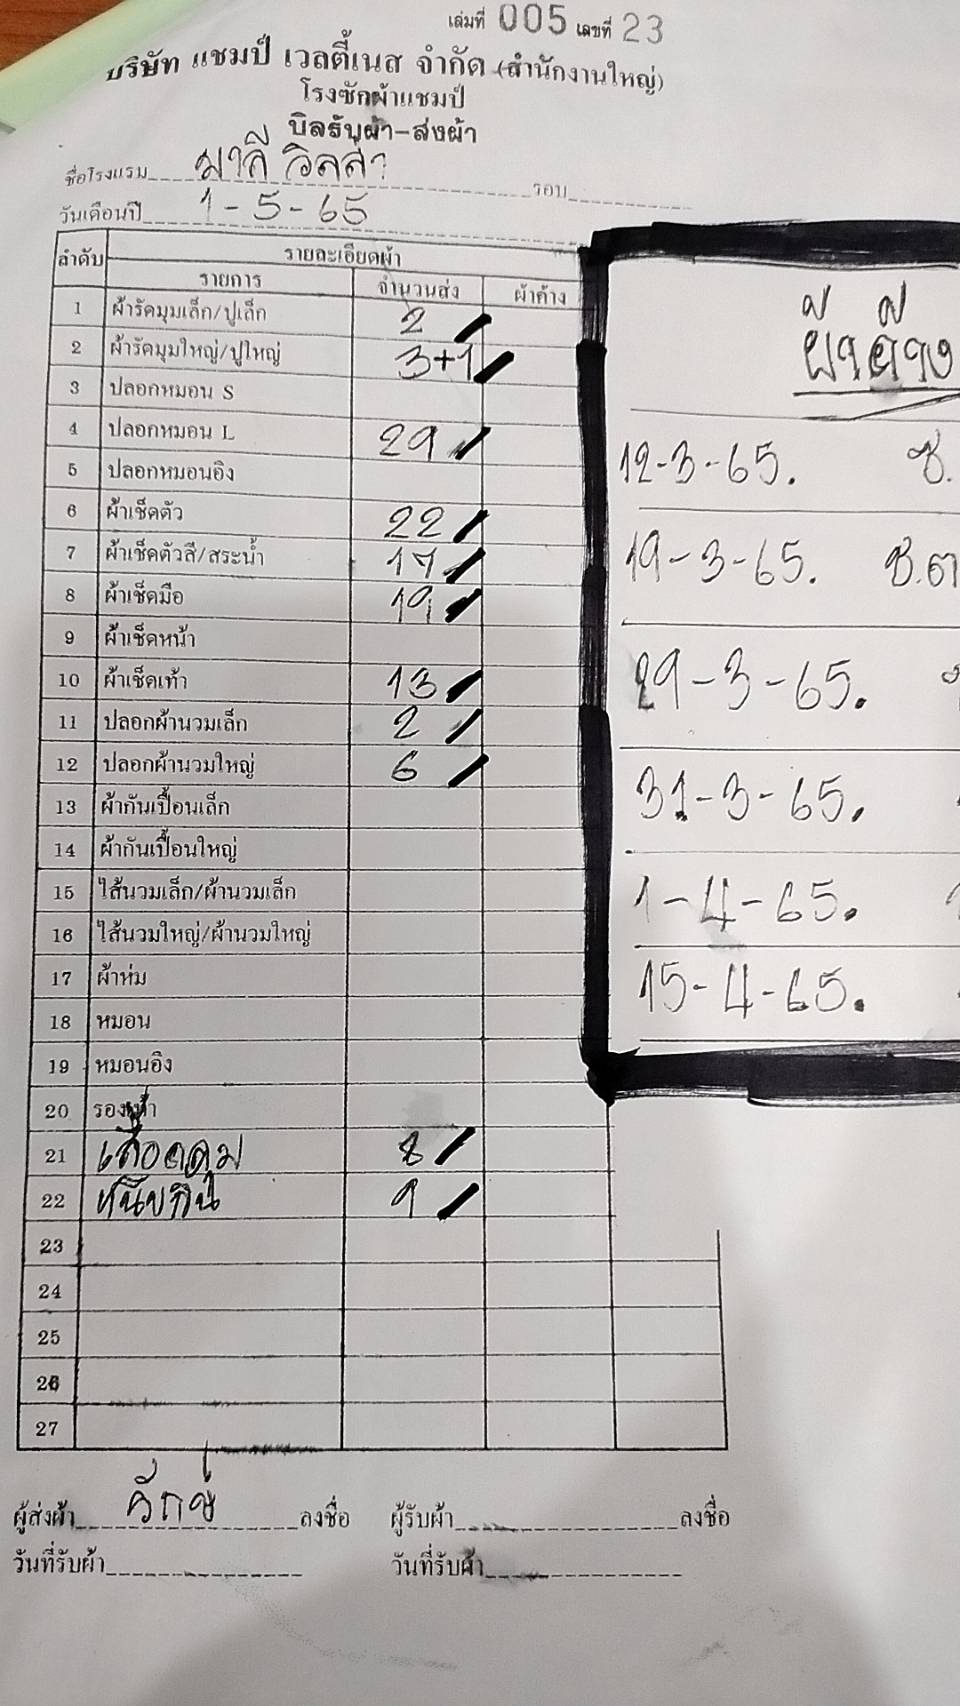 เล่มที่ 005 เลขที่ 23
บริษัท แชมป์ เวลตี้เนส จำกัด (สำนักงานใหญ่)
โรงซักผ้าแชมป์
บิลรับผ้า-ส่งผ้า
ชื่อโรงแรม มาลี วิลล่า รอบ
วันเดือนปี 1-5-65
ลำดับ รายละเอียดผ้า
รายการ จำนวนส่ง ผ้าค้าง
1 ผ้ารัดมุมเล็ก/ปูเล็ก 2
2 ผ้ารัดมุมใหญ่/ปูใหญ่ 3+1
3 ปลอกหมอน S
4 ปลอกหมอน L 29
5 ปลอกหมอนอิง
6 ผ้าเช็ดตัว 22
7 ผ้าเช็ดตัวสี/สระน้ำ 17
8 ผ้าเช็ดมือ 19
9 ผ้าเช็ดหน้า
10 ผ้าเช็ดเท้า 13
11 ปลอกผ้านวมเล็ก 2
12 ปลอกผ้านวมใหญ่ 6
13 ผ้ากันเปื้อนเล็ก
14 ผ้ากันเปื้อนใหญ่
15 ไส้นวมเล็ก/ผ้านวมเล็ก
16 ไส้นวมใหญ่/ผ้านวมใหญ่
17 ผ้าห่ม
18 หมอน
19 หมอนอิง
20 รองผ้า
21 เสื้อคลุม 8
22 9
23
24
25
26
27
ผ้าค้าง
12-3-65. ช.
19-3-65. ช.ต
29-3-65.
31-3-65.
1-4-65.
15-4-65.
ผู้ส่งผ้า ลงชื่อ ผู้รับผ้า ลงชื่อ
วันที่รับผ้า วันที่รับผ้า